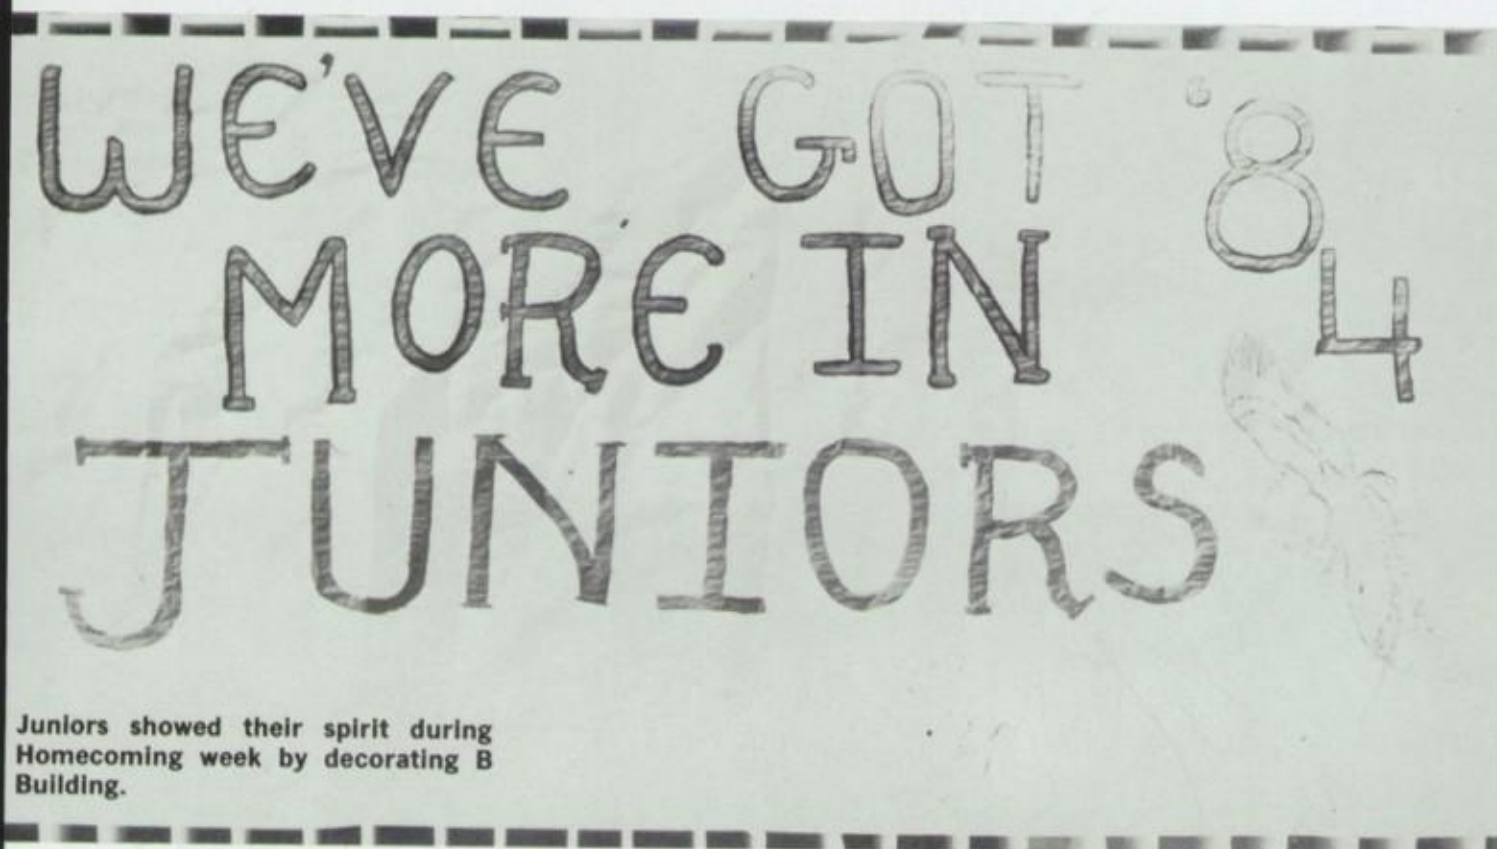 WE'VE GOT '84
MORE IN
JUNIORS
Juniors showed their spirit during
Homecoming week by decorating B
Building.